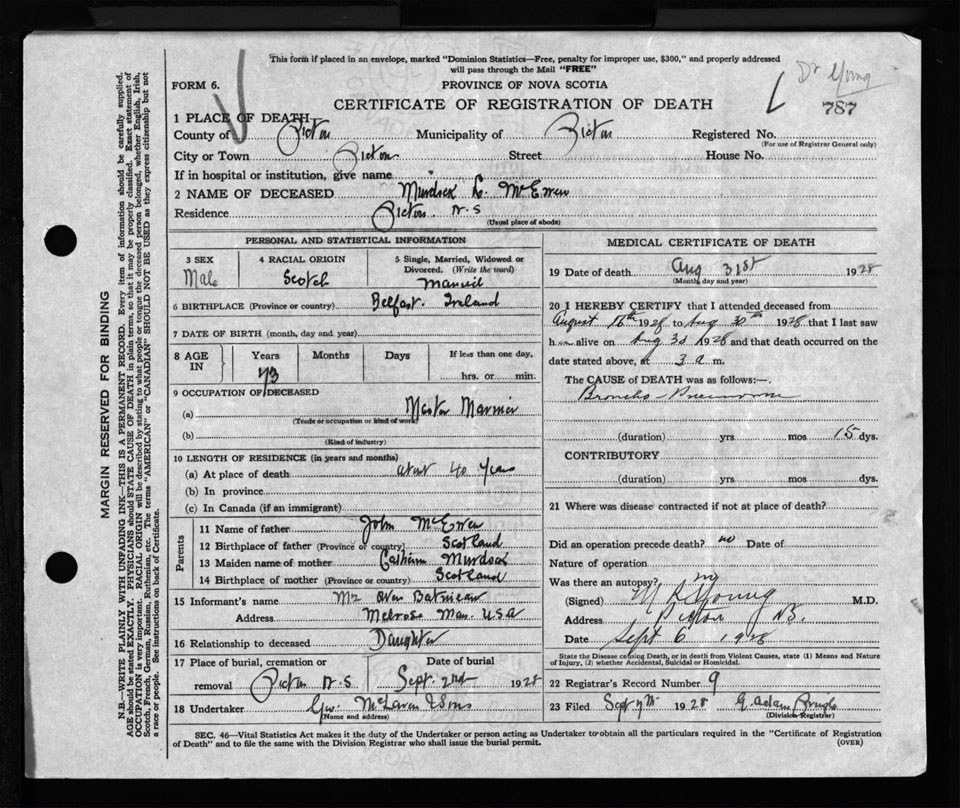 This form if placed in an envelope, marked "Dominion Statistics—Free, penalty for improper use, $300," and properly addressed
will pass through the Mail "FREE"
Dr Young
FORM 6.
PROVINCE OF NOVA SCOTIA
787
CERTIFICATE OF REGISTRATION OF DEATH
1 PLACE OF DEATH
County of Pictou Municipality of Pictou Registered No.
(For use of Registrar General only)
City or Town Pictou Street House No.
If in hospital or institution, give name
2 NAME OF DECEASED Murdock McEwen
Residence Pictou N.S
(Usual place of abode)
PERSONAL AND STATISTICAL INFORMATION
3 SEX 4 RACIAL ORIGIN 5 Single, Married, Widowed or
Divorced. (Write the word)
Male Scotch Married
6 BIRTHPLACE (Province or country) Belfast. Ireland
7 DATE OF BIRTH (month, day and year)
8 AGE IN Years Months Days If less than one day,
73 hrs. or min.
9 OCCUPATION OF DECEASED
(a) Master Mariner
(Trade or occupation or kind of work)
(b)
(Kind of industry)
10 LENGTH OF RESIDENCE (in years and months)
(a) At place of death about 40 Years
(b) In province
(c) In Canada (if an immigrant)
Parents
11 Name of father John McEwen
12 Birthplace of father (Province or country) Scotland
13 Maiden name of mother Murdock
14 Birthplace of mother (Province or country) Scotland
15 Informant's name
Address Melrose Mass. USA
16 Relationship to deceased Daughter
17 Place of burial, cremation or Date of burial
removal Pictou N.S Sept. 2nd 1928
18 Undertaker Geo. McLaren & Sons
(Name and address)
MEDICAL CERTIFICATE OF DEATH
19 Date of death Aug 31st 1928
(Month, day and year)
20 I HEREBY CERTIFY that I attended deceased from
August 16th 1928 to Aug 30th 1928 that I last saw
him alive on Aug 30 1928 and that death occurred on the
date stated above, at 3 a m.
The CAUSE of DEATH was as follows:—
Broncho-Pneumonia
(duration) yrs. mos 15 dys.
CONTRIBUTORY
(duration) yrs. mos. dys.
21 Where was disease contracted if not at place of death?
Did an operation precede death? no Date of
Nature of operation
Was there an autopsy? no
(Signed) Young M.D.
Address Pictou N.S.
Date Sept 6 1928
State the Disease causing Death, or in death from Violent Causes, state (1) Means and Nature
of Injury, (2) whether Accidental, Suicidal or Homicidal.
22 Registrar's Record Number 9
23 Filed Sept 7th 1928 G. Adam
(Division Registrar)
SEC. 46—Vital Statistics Act makes it the duty of the Undertaker or person acting as Undertaker to obtain all the particulars required in the "Certificate of Registration
of Death" and to file the same with the Division Registrar who shall issue the burial permit.
(OVER)
MARGIN RESERVED FOR BINDING
N.B.—WRITE PLAINLY WITH UNFADING INK—THIS IS A PERMANENT RECORD. Every item of information should be carefully supplied.
AGE should be stated EXACTLY. PHYSICIANS should STATE CAUSE OF DEATH in plain terms, so that it may be properly classified. Exact statement of
OCCUPATION is very important. RACIAL ORIGIN will be described by stating to what people or tongue the deceased person belonged, whether English, Irish,
Scotch, French, German, Russian, Ruthenian, etc. The terms "AMERICAN" or "CANADIAN" SHOULD NOT BE USED as they express citizenship but not
a race or people. See instructions on back of Certificate.